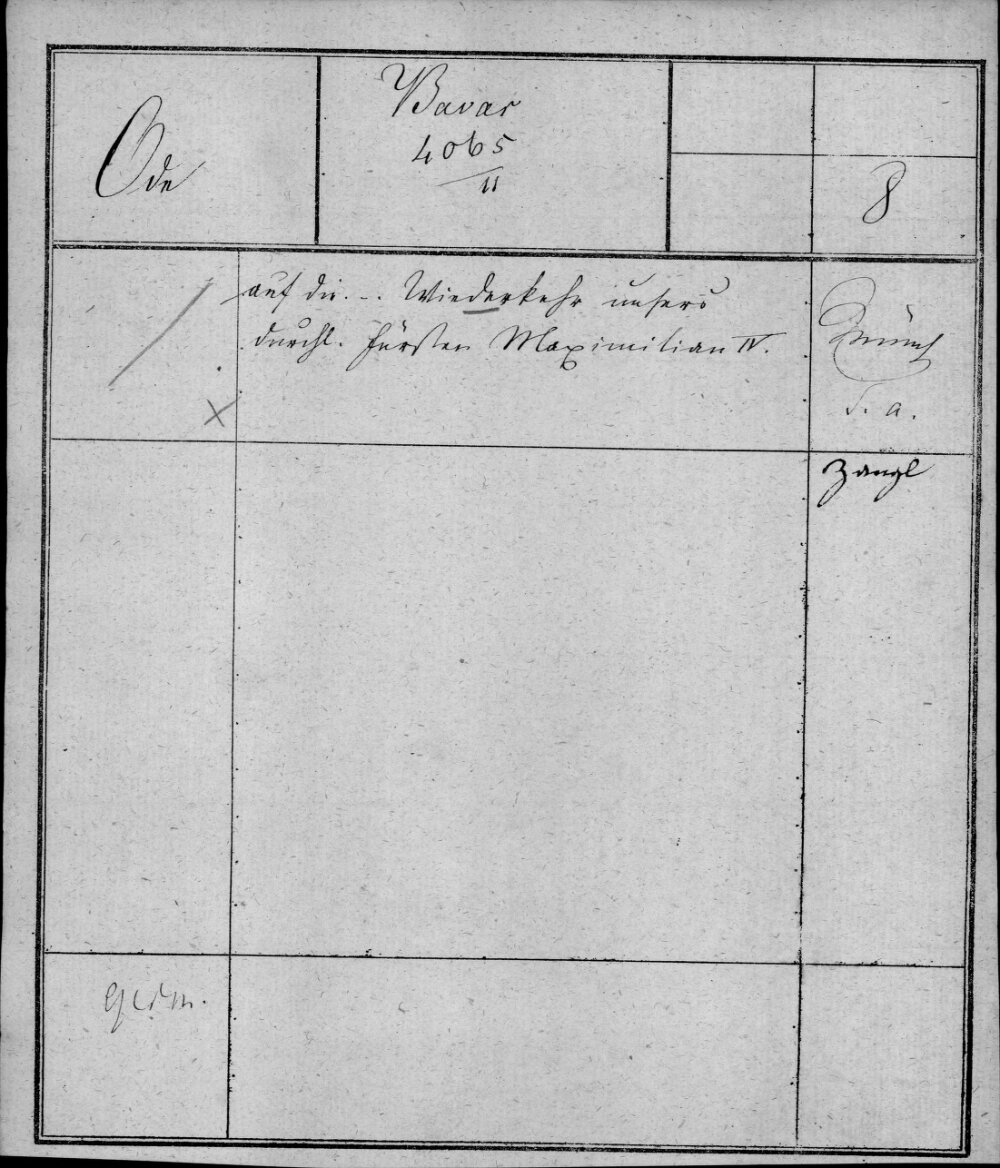 Ode
Bavar
4065
11
8
auf die - . Wiederkehr unsers
durchl. Fürsten Maximilian IV.
Münch
s. a.
Zangl